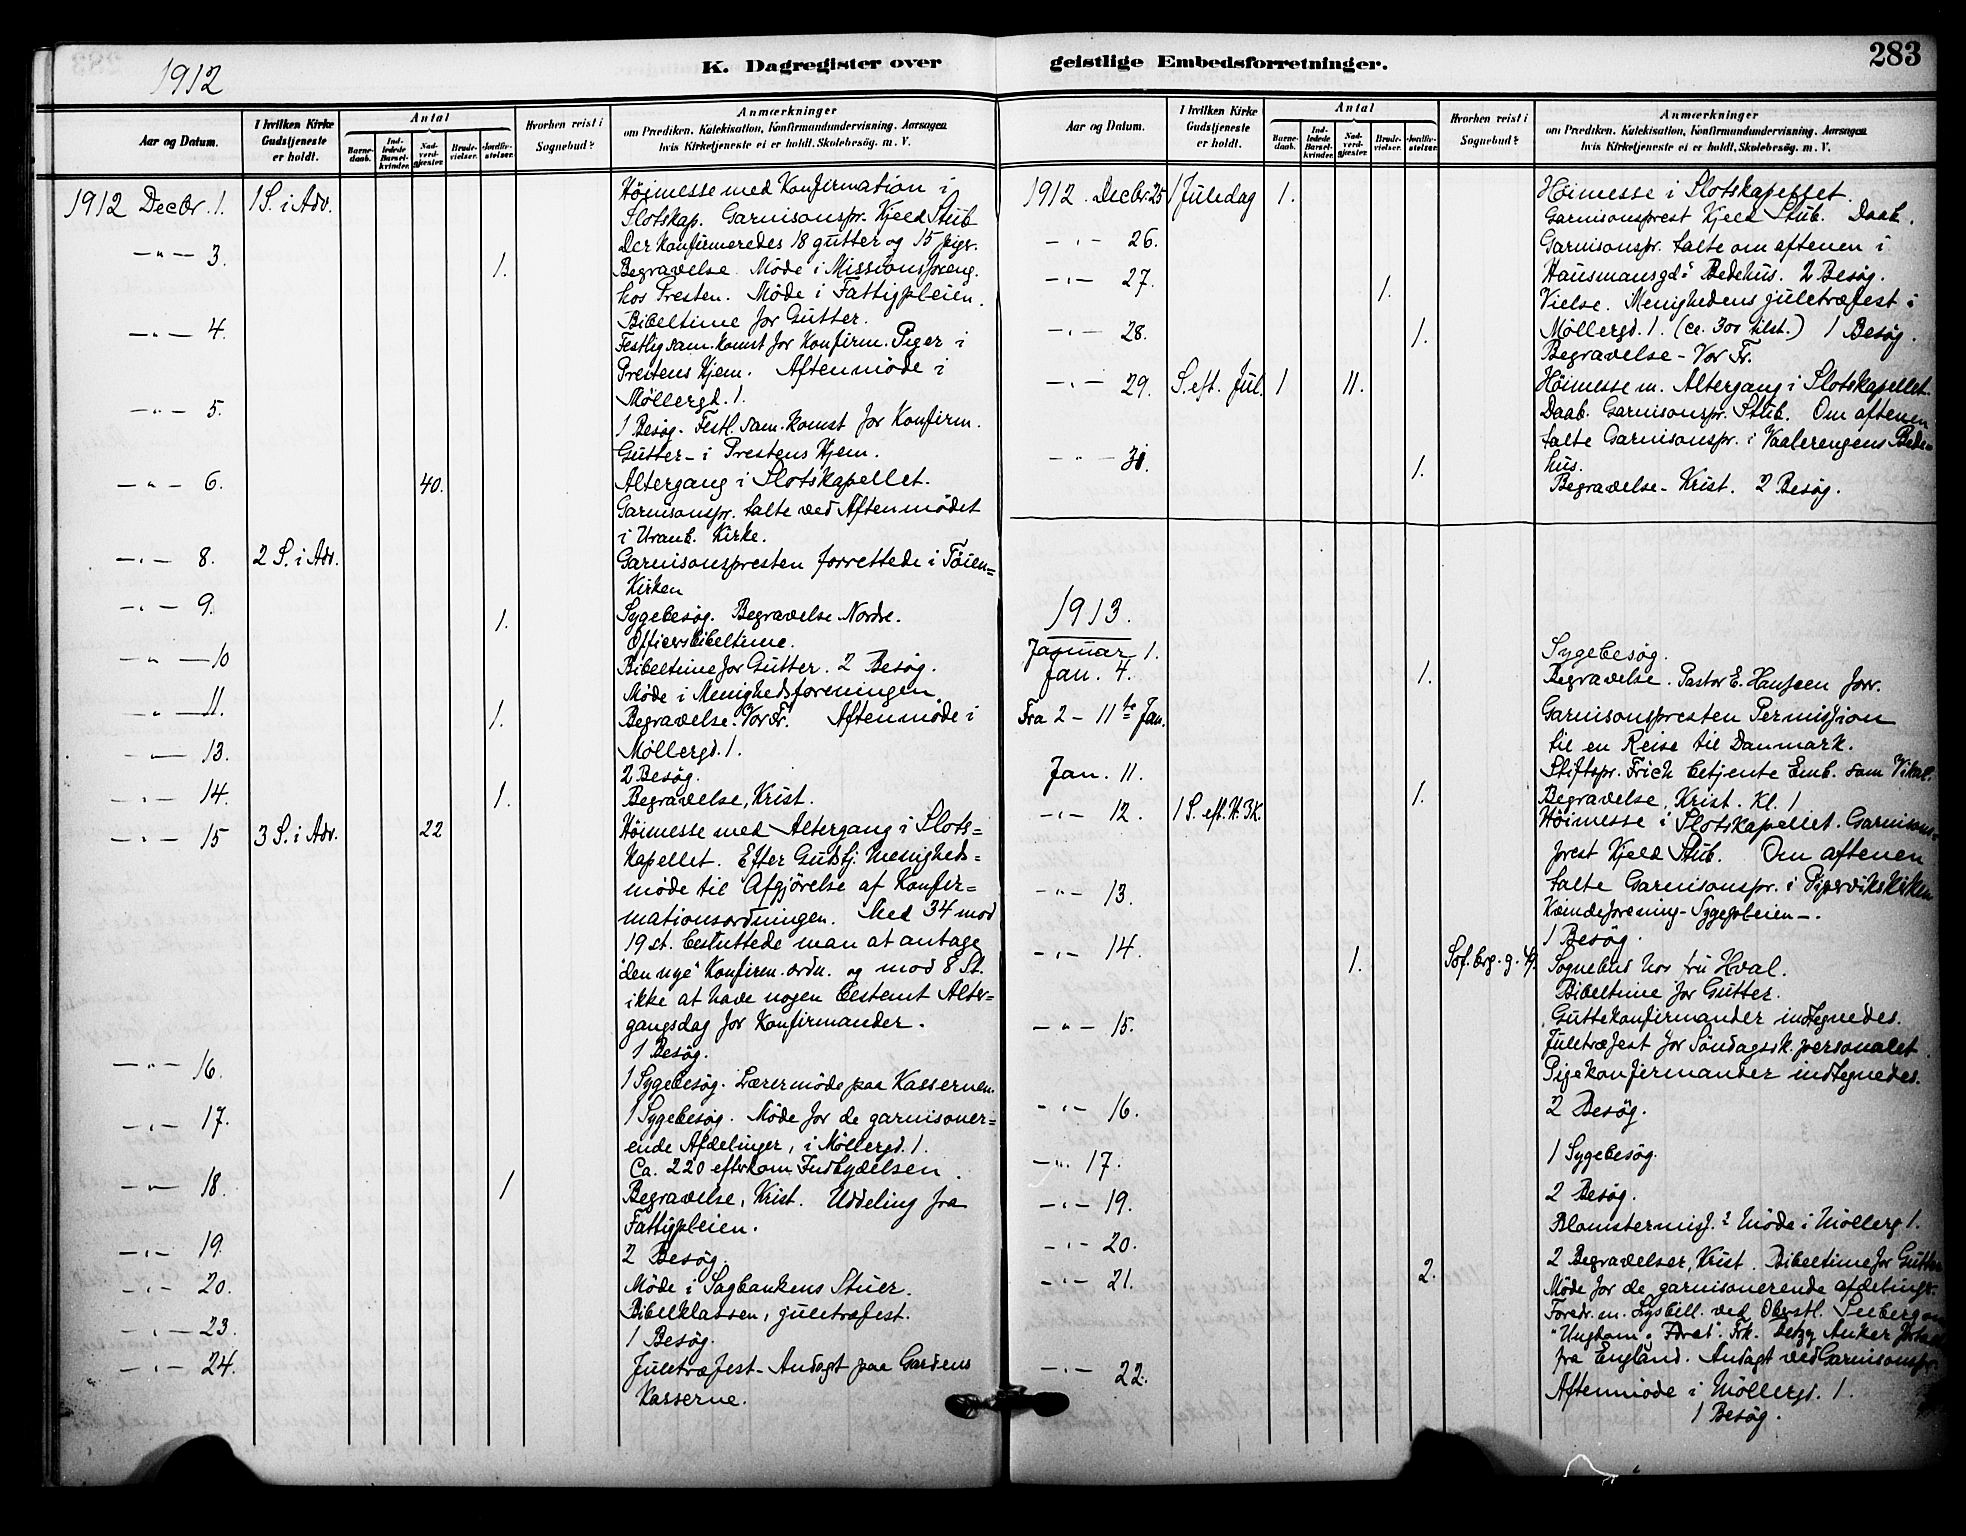 1912
K. Dagregister over
Aar og Datum.
I hvilken Kirke Gudstjeneste er holdt.
Antal
Barne-daab.
Ind-ledede Barsel-kvinder.
Nad-verd-gjæster.
Brude-vielser.
Jordfæ-stelser.
Hvorhen reist i Sognebud?
Anmærkninger
om Prædiken, Katekisation, Konfirmandundervisning, Aarsagen
hvis Kirketjeneste ei er holdt, Skolebesøg. m. V.
1912 Decbr. 1. 1 S. i Adv. Høimesse med Konfirmation i
Slotskap. Garnisonspr. Kjeld Stub
Der Konfirmeredes 18 gutter og 15 piger.
— " — 3. 1. Begravelse. Møde i Missionsforeng.
hos Presten. Møde i Fattigpleien.
Bibeltime for Gutter.
— " — 4. Festlig sam.komst for Konfirm. Piger i
Prestens Hjem. Aftenmøde i
Møllergd. 1.
— " — 5. 1 Besøg. Festl. sam.komst for Konfirm.
Gutter - i Prestens Hjem.
— " — 6. 40. Altergang i Slotskapellet.
Garnisonspr. talte ved Aftenmødet
i Uranb. Kirke.
— " — 8. 2 S. i Adv. Garnisonspresten forrettede i Tøien=
Kirken
— " — 9. 1. Sygebesøg. Begravelse Nordre.
Officersbibeltime.
— " — 10 Bibeltime for Gutter. 2 Besøg.
Møde i Menighedsforeningen
— " — 11. 1. Begravelse. Vor Fr. Aftenmøde i
Møllergd. 1.
— " — 13. 2 Besøg.
— " — 14. 1. Begravelse, Krist.
— " — 15 3 S. i Adv. 22 Høimesse med Altergang i Slots=
kapellet. Efter Gudstj. Menigheds=
møde til Afgjørelse af Konfir=
mationsordningen. Med 34 mod
19 st. besluttede man at antage
"den nye" Konfirm. ordn. og mod 8 St.
ikke at have nogen bestemt Alter=
gangsdag for Konfirmander.
1 Besøg.
— " — 16. 1 Sygebesøg. Lærermøde paa Kassernen.
— " — 17. 1 Sygebesøg. Møde for de garnisoner=
ende Afdelinger, i Møllergd. 1.
Ca. 220 efterkom Indbydelsen.
— " — 18. 1 Begravelse, Krist. Uddeling fra
Fattigpleien.
— " — 19. 2 Besøg.
— " — 20. Møde i Sagbankens Stuer.
Bibelklassen, juletræfest.
— " — 23. 1 Besøg.
— " — 24. Juletræfest - Andagt paa Gardens
Kasserne.
geistlige Embedsforretninger.
283
Aar og Datum.
I hvilken Kirke Gudstjeneste er holdt.
Antal
Barne-daab.
Ind-ledede Barsel-kvinder.
Nad-verd-gjæster.
Brude-vielser.
Jordfæ-stelser.
Hvorhen reist i Sognebud?
Anmærkninger
om Prædiken, Katekisation, Konfirmandundervisning, Aarsagen
hvis Kirketjeneste ei er holdt, Skolebesøg. m. V.
1912. Decbr. 25 1 Juledag 1. Høimesse i Slotskapellet.
Garnisonsprest Kjeld Stub. Daab.
— " — 26. Garnisonspr. talte om aftenen i
Hausmansgds Bedehus. 2 Besøg.
— " — 27. 1. Vielse. Menighedens juletræfest i
Møllergd. 1. (ca. 300 tilst.) 1 Besøg.
— " — 28. 1. Begravelse - Vor Fr.
— " — 29. S. eft. Jul. 1 11. Høimesse m. Altergang i Slotskapellet.
Daab. Garnisonspr. Stub. Om aftenen
talte Garnisonspr. i Vaalerengens Bede=
hus.
— " — 1. Begravelse - Krist. 2 Besøg.
1913.
Januar 1. Sygebesøg.
Jan. 4. 1. Begravelse. Pastor E. Hansen forr.
Fra 2 - 11te Jan. Garnisonspresten Permission
til en Reise til Danmark.
Stiftspr. Frich betjente Emb. som Vikar.
Jan. 11. 1. Begravelse, Krist. Kl. 1
— " — 12. 1 S. eft. H. 3K. Høimesse i Slotskapellet. Garnisons=
prest Kjeld Stub. Om aftenen
talte Garnisonspr. i Pipervikskirken
— " — 13. Kvindeforening - Sygepleien —.
1 Besøg.
— " — 14. 1. Sof.brg. g. Sognebud hos fru Hval.
Bibeltime for Gutter.
— " — 15. Guttekonfirmander indtegnedes.
Juletræfest for Søndagssk. personalet.
Pigekonfirmander indtegnedes.
— " — 16. 2 Besøg.
— " — 17. 1 Sygebesøg.
— " — 19. 2 Besøg.
— " — 20. Blomstermis. Møde i Møllerg 1.
— " — 21. 2. 2 Begravelser, Krist. Bibeltime for Gutter
Møde for de garnisonerende afdelinger.
Foredr. m. Lysbill. ved Oberstl. Seeberg om
"Ungdom Frk. Betzy Anker
fra England. Andagt ved Garnisonspr.
— " — 22. Aftenmøde i Møllergd. 1.
1 Besøg.